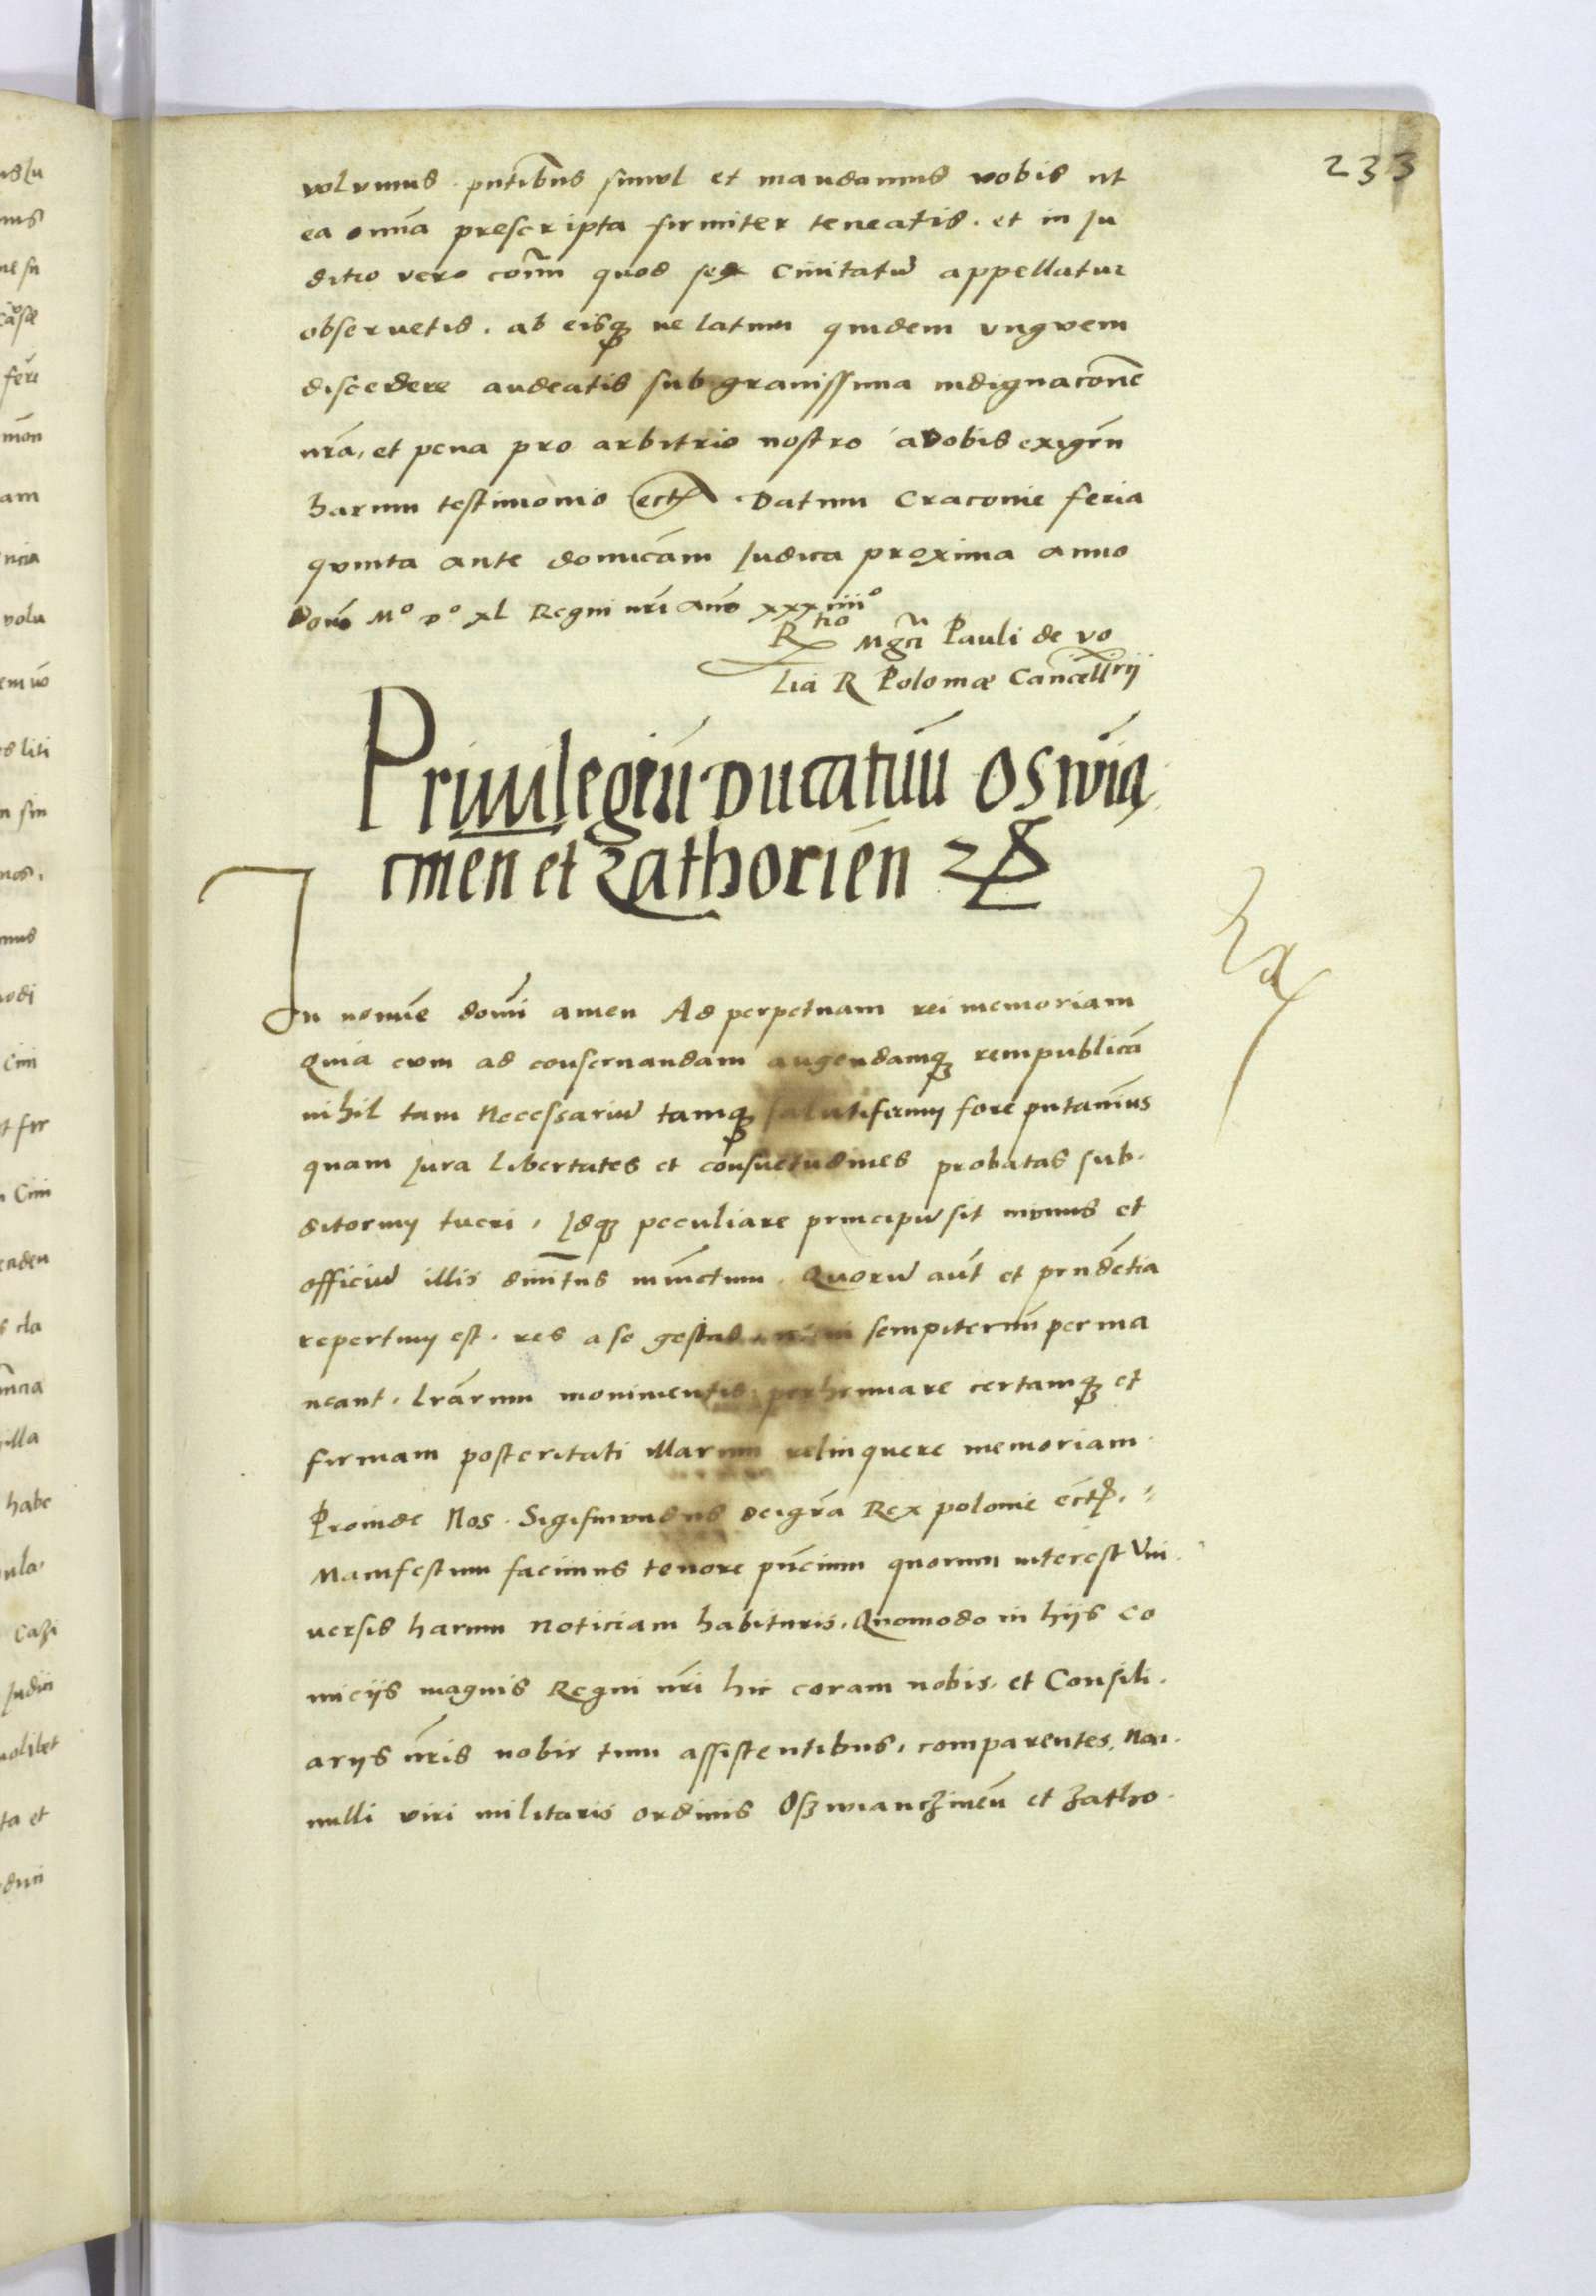 233
volumus. pn̄tibus simul et mandamus vobis ut
ea om̄ia prescripta firmiter teneatis. et in Ju
ditio vero com̄i quod sex Civitatū appellatur
observetis. ab eisq3 ne latum quidem ungvem
discedere audeatis sub gravissima indignacōne
nr̄a, et pena pro arbitrio nostro a vobis exigēn
harum testimonio ect. Datum Cracovie feria
quinta ante domīcam Judica proxima anno
Domī Mº Dº XL Regni nr̄i Anno xxxiiiiº
R tio Mgci Pauli de vo
Lia R Poloniæ Cancellrij
Privilegiū Ducatuū Oswiā
cimen et Zathorien̄
In nomīe domī amen Ad perpetuam rei memoriam
Quia cum ad conservandam augendamq3 rempublicā
nihil tam Necessariū tamq3 salutiferum fore putamus
quam Jura libertates et consuetudines probatas sub.
ditorum tueri, Idq3 peculiare principū sit munus et
officiū illis divinitus iniunctum. Quorū aūt et prudētia
repertum est. res a se gestas sempiternū perma
neant. lrārum monimentis perhennare certamq3 et
firmam posteritati illarum relinquere memoriam
Proinde Nos. Sigismundus dei gr̄a Rex polonie ect.
Manifestum facimus tenore pn̄cium quorum interest Uni.
versis harum noticiam habituris. Quomodo in hijs co
miciis magnis Regni nr̄i hic coram nobis. et Consili.
arijs nr̄is nobis tum assistentibus. comparentes. Non.
nulli viri militaris ordinis Oszwianczimeñ et Zatho.